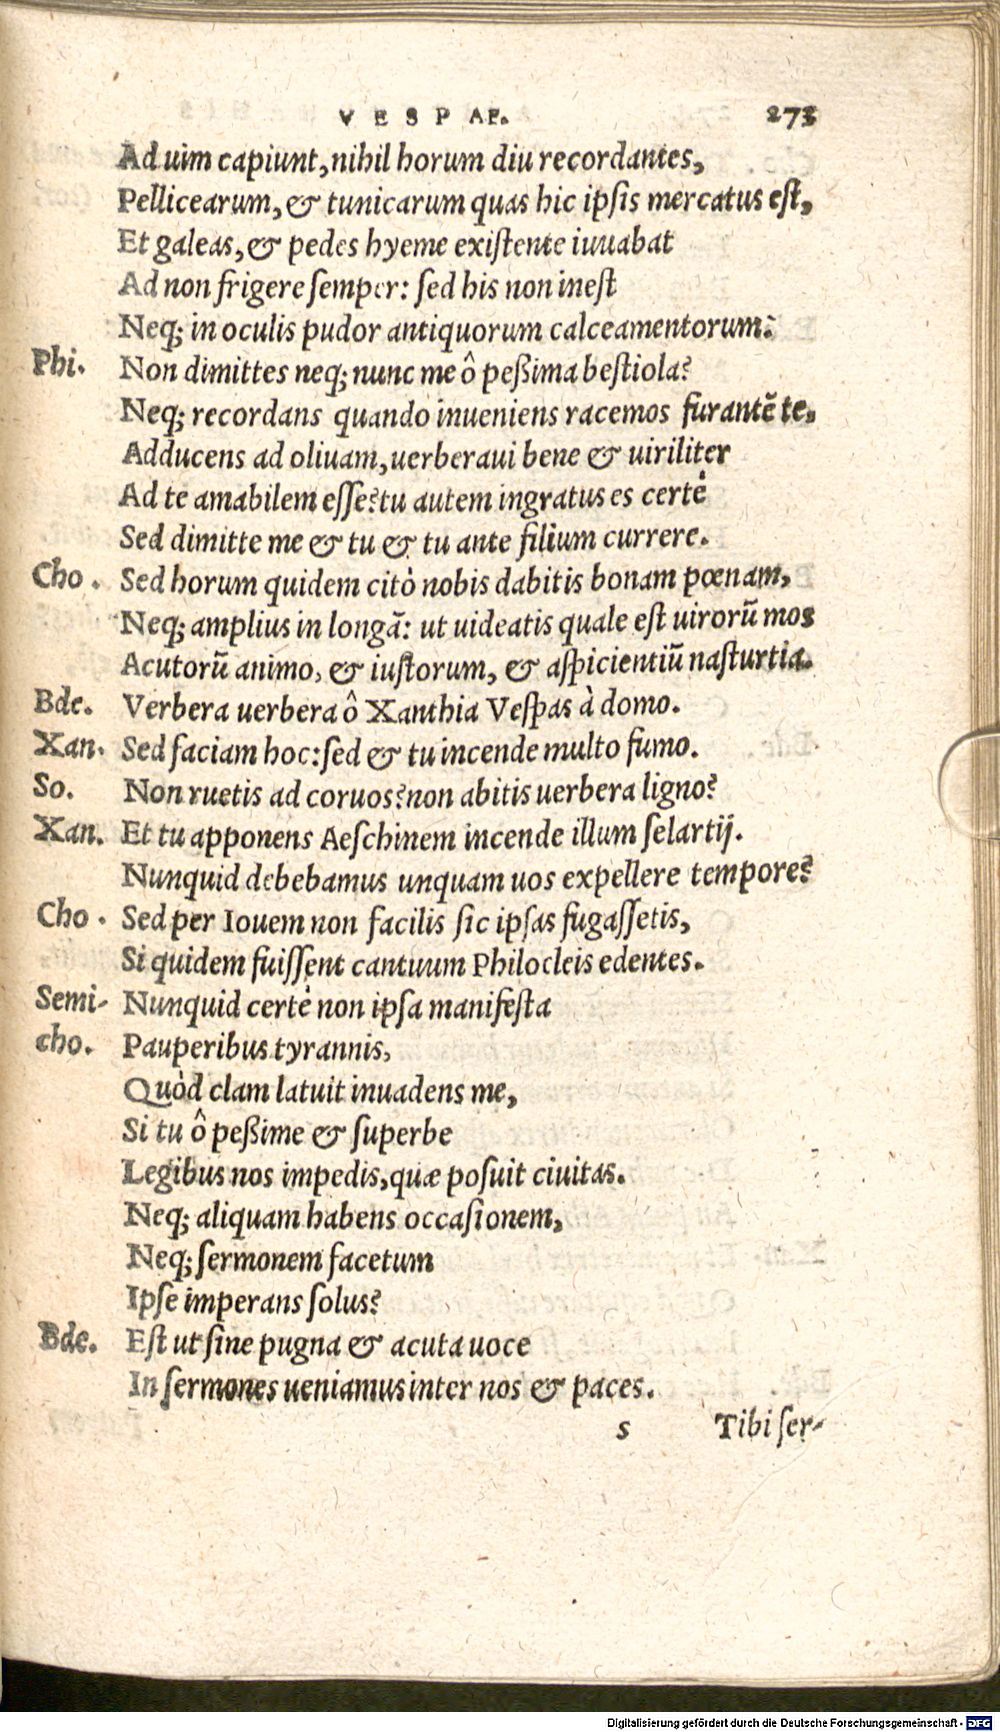 VESPAE. 273
Ad uim capiunt, nihil horum diu recordantes,
Pellicearum, & tunicarum quas hic ipsis mercatus est,
Et galeas, & pedes hyeme existente iuuabat
Ad non frigere semper: sed his non inest
Neq; in oculis pudor antiquorum calceamentorum.
Phi. Non dimittes neq; nunc me ô peßima bestiola?
Neq; recordans quando inueniens racemos furantẽ te,
Adducens ad oliuam, uerberaui bene & uiriliter
Ad te amabilem esse? tu autem ingratus es certè
Sed dimitte me & tu & tu ante filium currere.
Cho. Sed horum quidem citò nobis dabitis bonam pœnam,
Neq; amplius in longã: ut uideatis quale est uirorũ mos
Acutorũ animo, & iustorum, & aspicientiũ nasturtia.
Bde. Verbera uerbera ô Xanthia Vespas à domo.
Xan. Sed faciam hoc: sed & tu incende multo fumo.
So. Non ruetis ad coruos? non abitis uerbera ligno?
Xan. Et tu apponens Aeschinem incende illum selartij.
Nunquid debebamus unquam uos expellere tempore?
Cho. Sed per Iouem non facilis sic ipsas fugassetis,
Si quidem fuissent cantuum Philocleis edentes.
Semi- Nunquid certè non ipsa manifesta
cho. Pauperibus tyrannis,
Quòd clam latuit inuadens me,
Si tu ô peßime & superbe
Legibus nos impedis, quæ posuit ciuitas.
Neq; aliquam habens occasionem,
Neq; sermonem facetum
Ipse imperans solus?
Bde. Est ut sine pugna & acuta uoce
In sermones ueniamus inter nos & paces.
s Tibi ser-
Digitalisierung gefördert durch die Deutsche Forschungsgemeinschaft - DFG